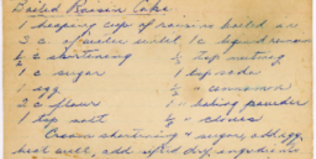 Boiled Raisin Cake
1 heaping cup of raisins boiled in
3 c. of water until 1 c. liquid remains
½ c shortening ½ tsp nutmeg
1 c sugar 1 tsp soda
1 egg ½ " cinnamon
2 c flour 1 " baking powder
1 tsp salt " cloves
Cream shortening & sugar, add egg,
beat well, add sifted dry ingredients